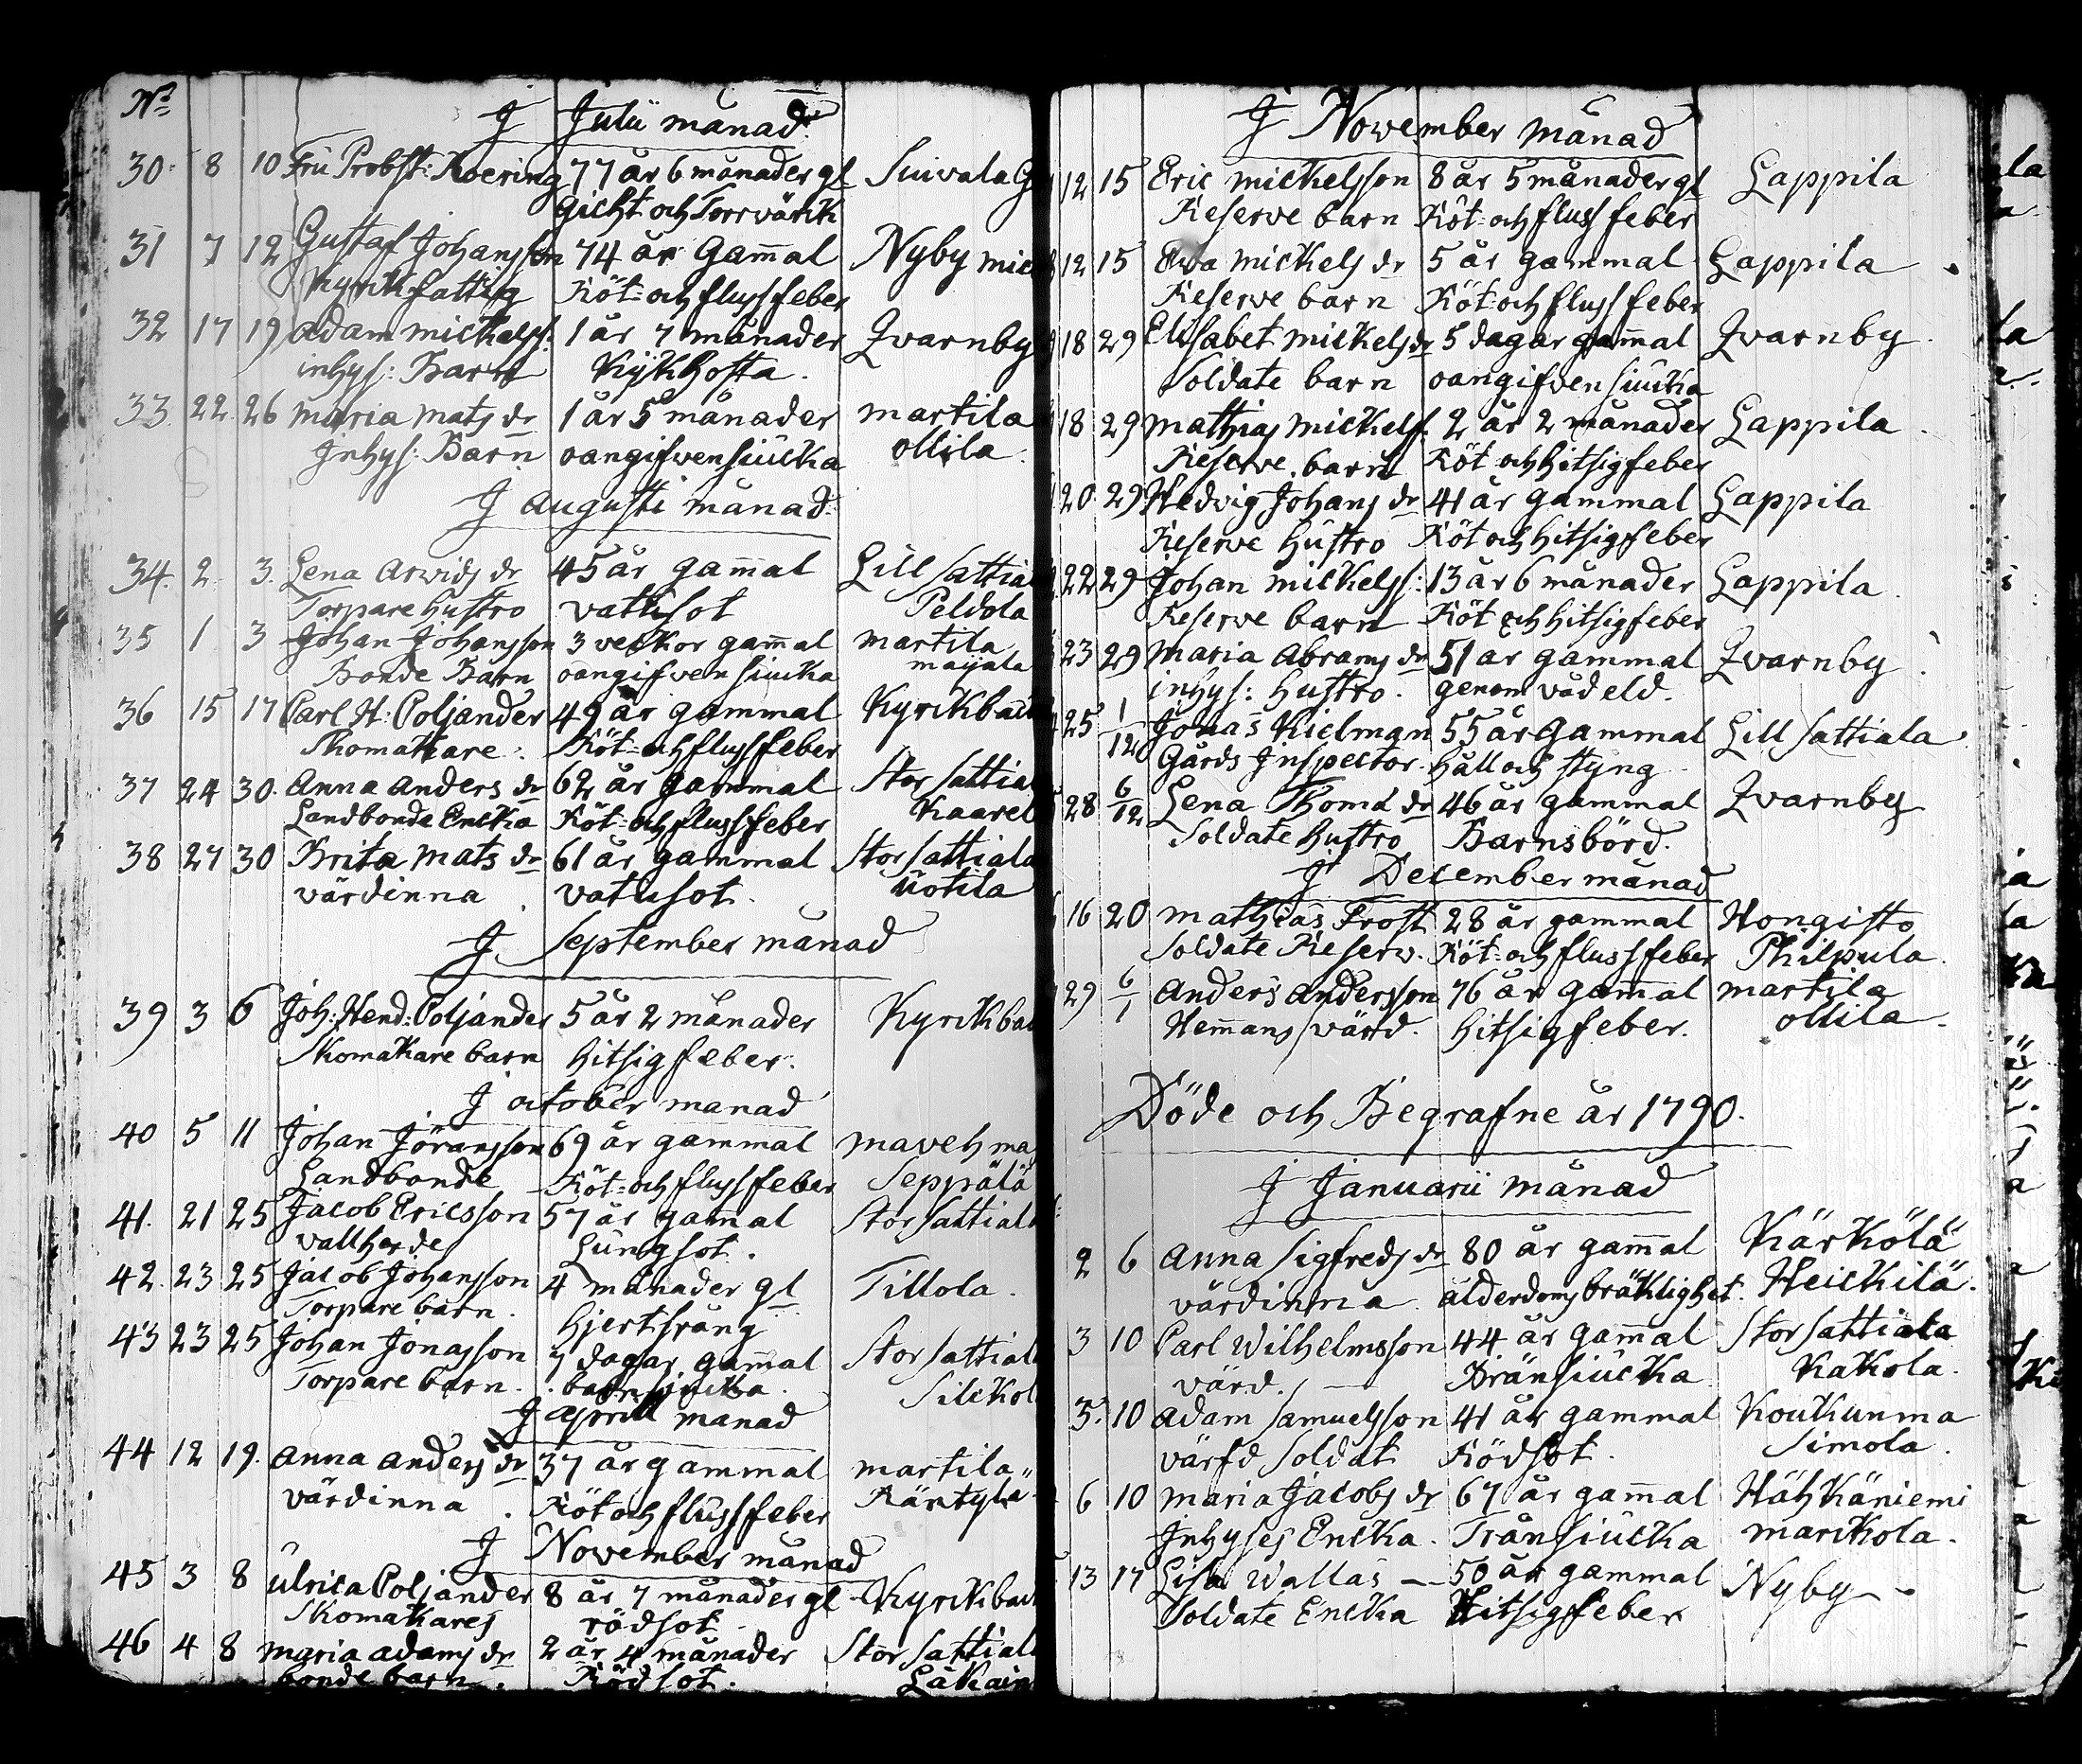 No
J Julii månad
30. 8 10 Fru Probst: Roering 77 år 6 månader gl Suivala G
gicht och Torrvärck
31 7 12 Gustaf Johansson 74 år Gam̄al Nyby
Kyrkfattig Röt- och fluss feber
32 17 19 Adam Mickelss: 1 år 7 månader Qvarnby
inhys: Barn Kijkhosta.
33. 22. 26 Maria Mats dr 1 år 5 månader Martila
Inhys: Barn oangifven siucka ollila.
J Augusti månad.
34. 2. 3. Lena Arvids dr 45 år gam̄al Lill Sattial
Torpare hustro vatusot Peldola
35 1 3 Johan Johansson 3 veckor gam̄al Martila
Bonde Barn oangifven siucka maijala
36 15 17 Carl H: Poljander 49 år gammal Kyrckbac
Skomakare. Röt- och fluss feber
37 24 30. Anna Anders dr 62 år gammal Stor Sattial
Landbonde Encka Röt- och fluss feber Kaarel
38 27 30 Brita Mats dr 61 år gammal Stor Sattiala
värdinna vatusot. Uotila
J September månad
39 3 6 Joh: Hend: Poljander 5 år 2 månader Kyrckbac
Skomakare barn hitsig feber.
J october månad
40 5 11 Johan Jöransson 69 år gammal maveh ma
Landbonde Röt- och fluss feber Seppälä
41. 21 25 Jacob Ericsson 57 år gamal Stor Sattial
vallherde Lungsot.
42. 23 25 Jacob Johansson 4 månader gl Tillola.
Torpare barn. hjertsrång
43 23 25 Johan Jonasson 7 dagar gam̄al Stor Sattial
Torpare barn. barnsjucka. Silckol
J Aprill månad
44 12 19. Anna Anders dr 37 år gammal Martila
värdinna. Röt och fluss feber Räntylä
J November månad
45 3 8 Ulrica Poljander 8 år 7 månader gl Kyrckbac
Skomakares rödsot
46 4 8 Maria Adams dr 2 år 4 månader Stor Sattial
bonde barn. Rödsot. Läkain
J November månad
12 15 Eric Mickelsson 8 år 5 månader gl Lappila
Reserve barn Röt- och fluss feber
12 15 Eva Mickels dr 5 år gammal Lappila
Reserve barn Röt- och fluss feber
18 29 Elisabet Mickels dr 5 dagar gam̄al Qvarnby.
Soldate barn oangifven siucka
18 29 Mathias Mickelss. 2 år 2 månader Lappila.
Reserve. barn Röt- och hitsig feber
20. 29 Hedvig Johans dr 41 år gammal Lappila
Reserve hustro Röt och hitsig feber
22 29 Johan Mickelss: 13 år 6 månader Lappila.
Reserve barn Röt och hitsig feber
23 29 Maria Abrams dr 51 år gammal Qvarnby
inhys: hustro. genom våd eld.
25 1/12 Jonas Kielman 55 år Gammal Lill Sattiala
Gårds Inspector. håll och styng
28 6/12 Lena Thomæ dr 46 år gammal Qvarnby
Soldate hustro Barnsbörd.
J December månad
16 20 Mathias Frost 28 år gammal Hongisto
Soldate Reserv. Röt- och fluss feber Philpula.
29 6/1 Anders Andersson 76 år gam̄al Martila
Hem̄ans värd. hitsig feber. ollila.
Döde och Begrafne år 1790.
J Januarii månad
2 6 Anna Sigfreds dr 80 år gam̄al Kärkölä
värdinna. ålderdoms bräklighet. Heickilä.
3 10 Carl Wilhelmsson 44 år gam̄al Stor Sattiala
värd. Bränsiucka Kakola.
3. 10 Adam Samuelsson 41 år gammal Koukunma
värfd Soldat Rödsot. Simola.
6 10 Maria Jacobs dr 67 år gam̄al Hähkäniemi
Inhyses Encka. Trånsiucka marckola.
13 17 Lisa Wallas 50 år gammal Nyby
Soldate Encka Hitsig feber